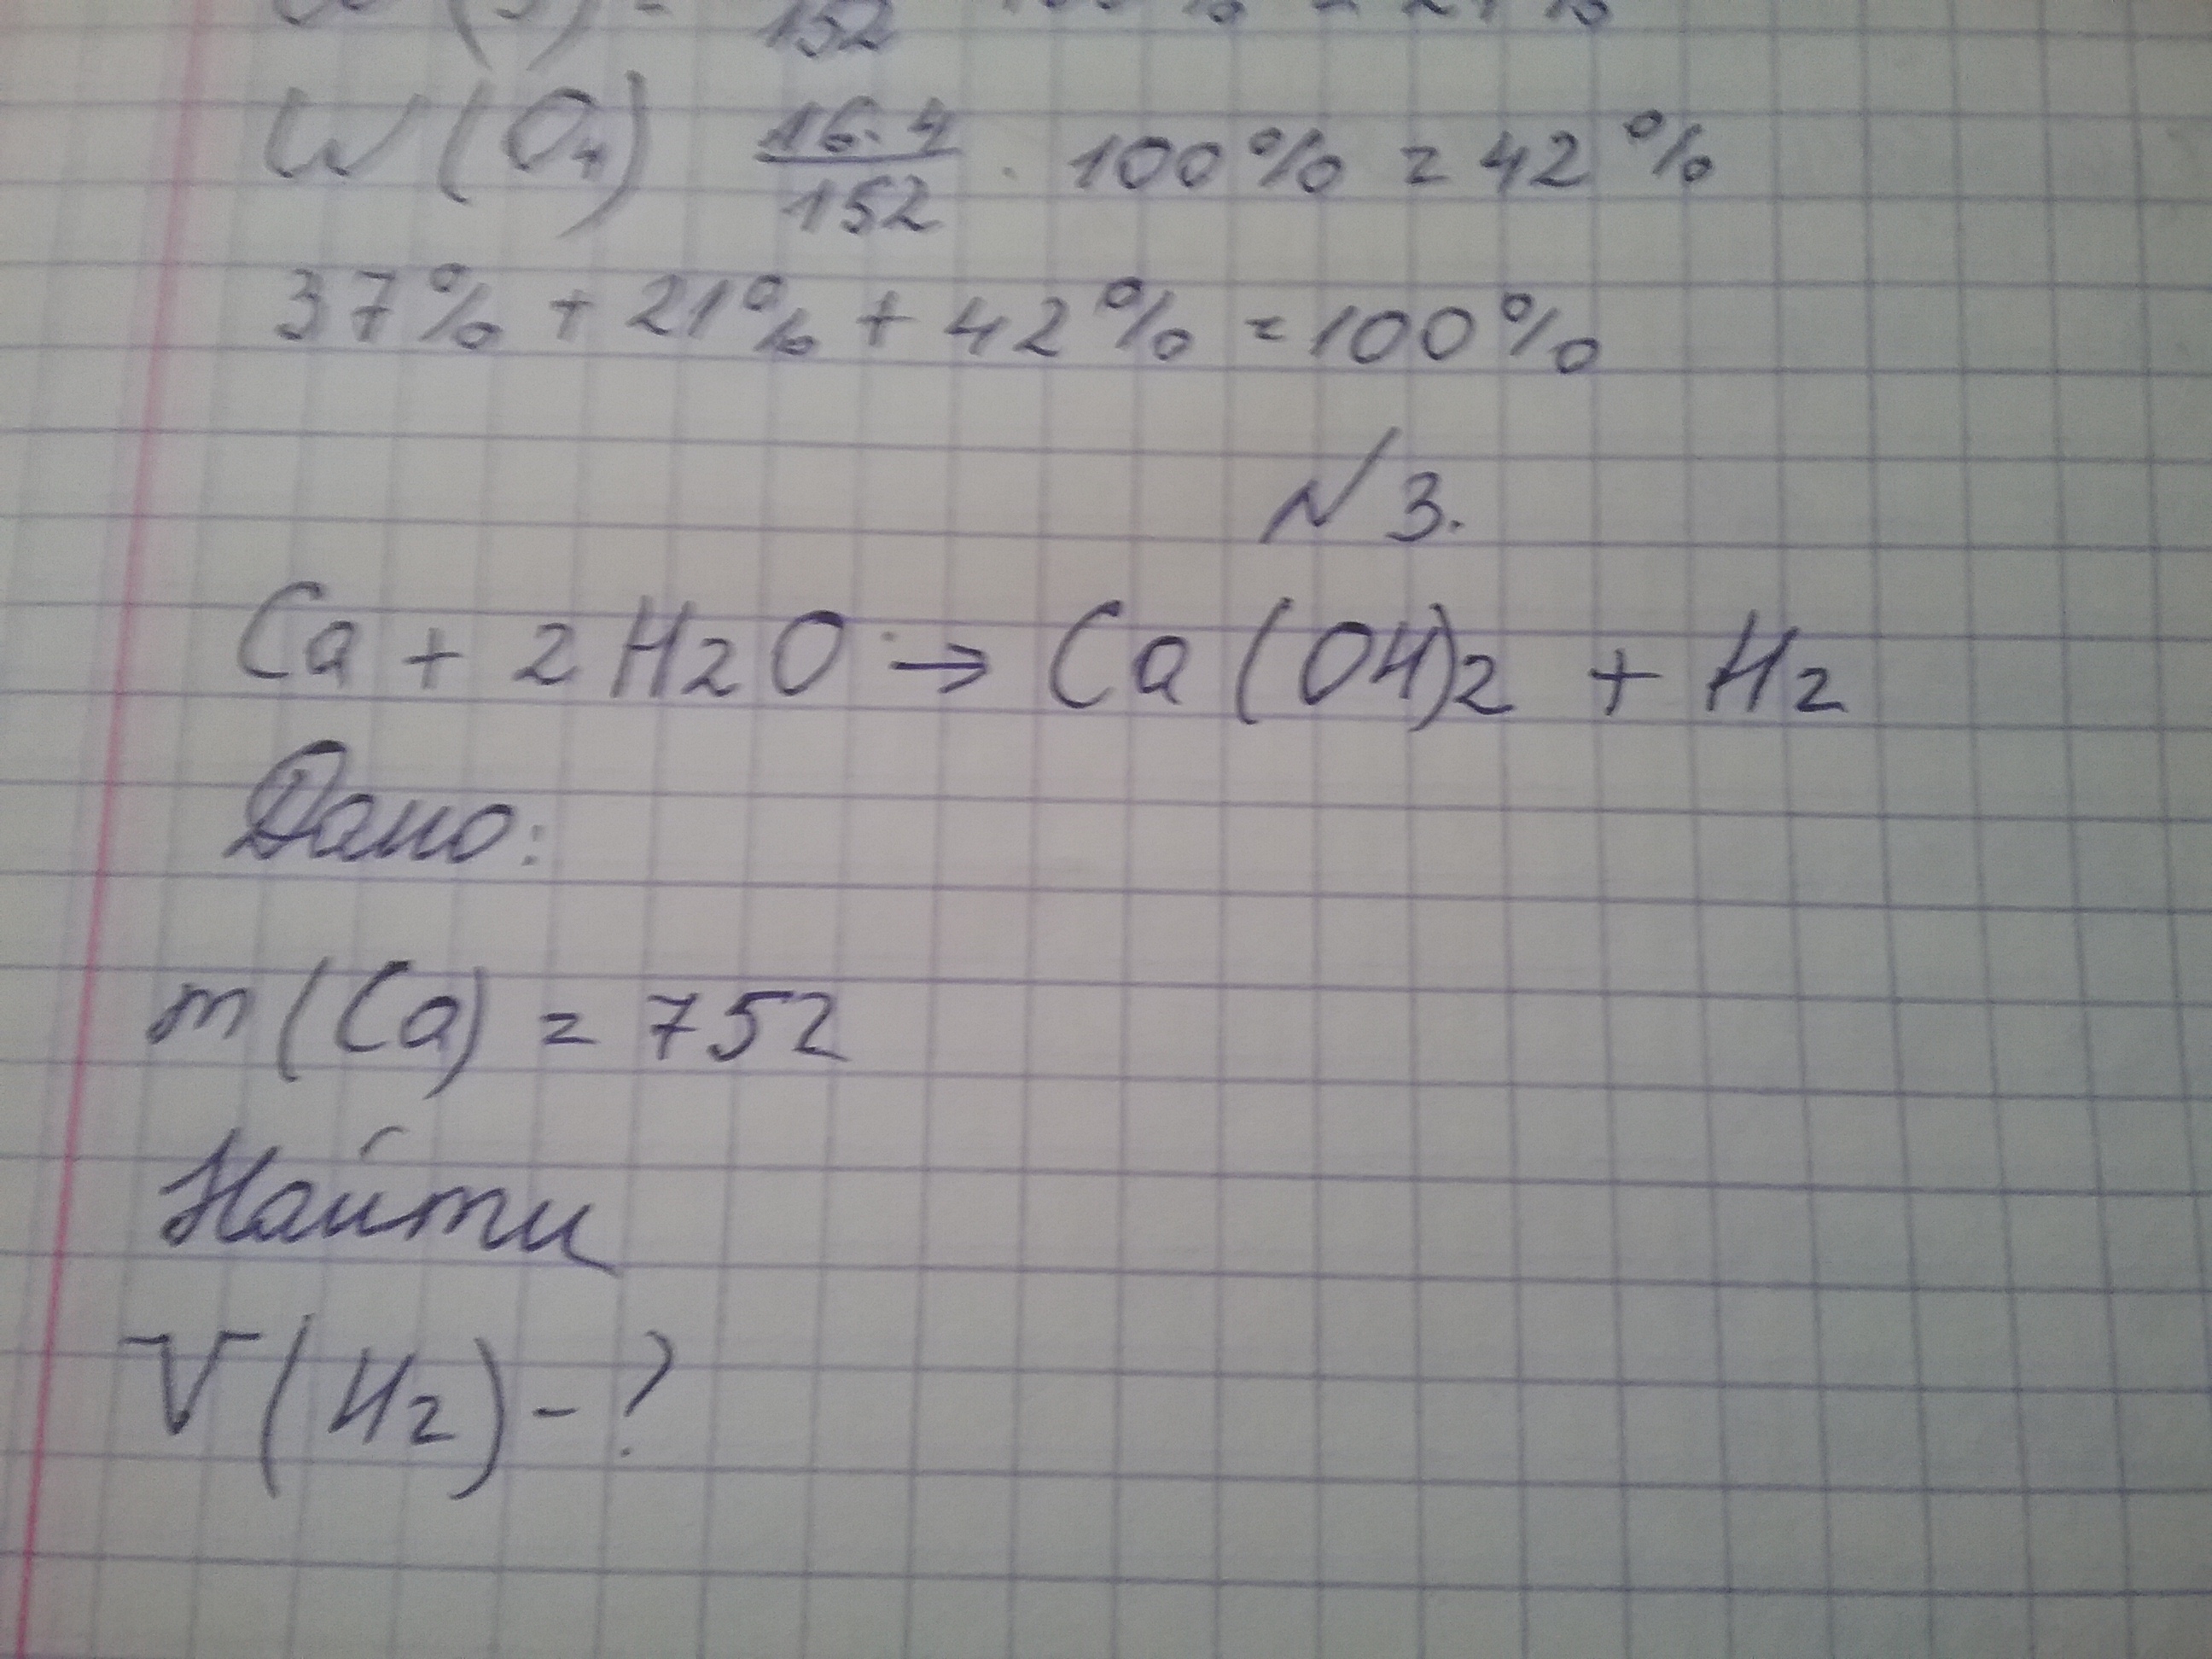 152
W (O₄) 16·4/152 · 100% = 42%
37% + 21% + 42% = 100%
№3.
Ca + 2H2O → Ca(OH)2 + H2
Дано:
m(Ca) = 75г
Найти
V(H2) - ?